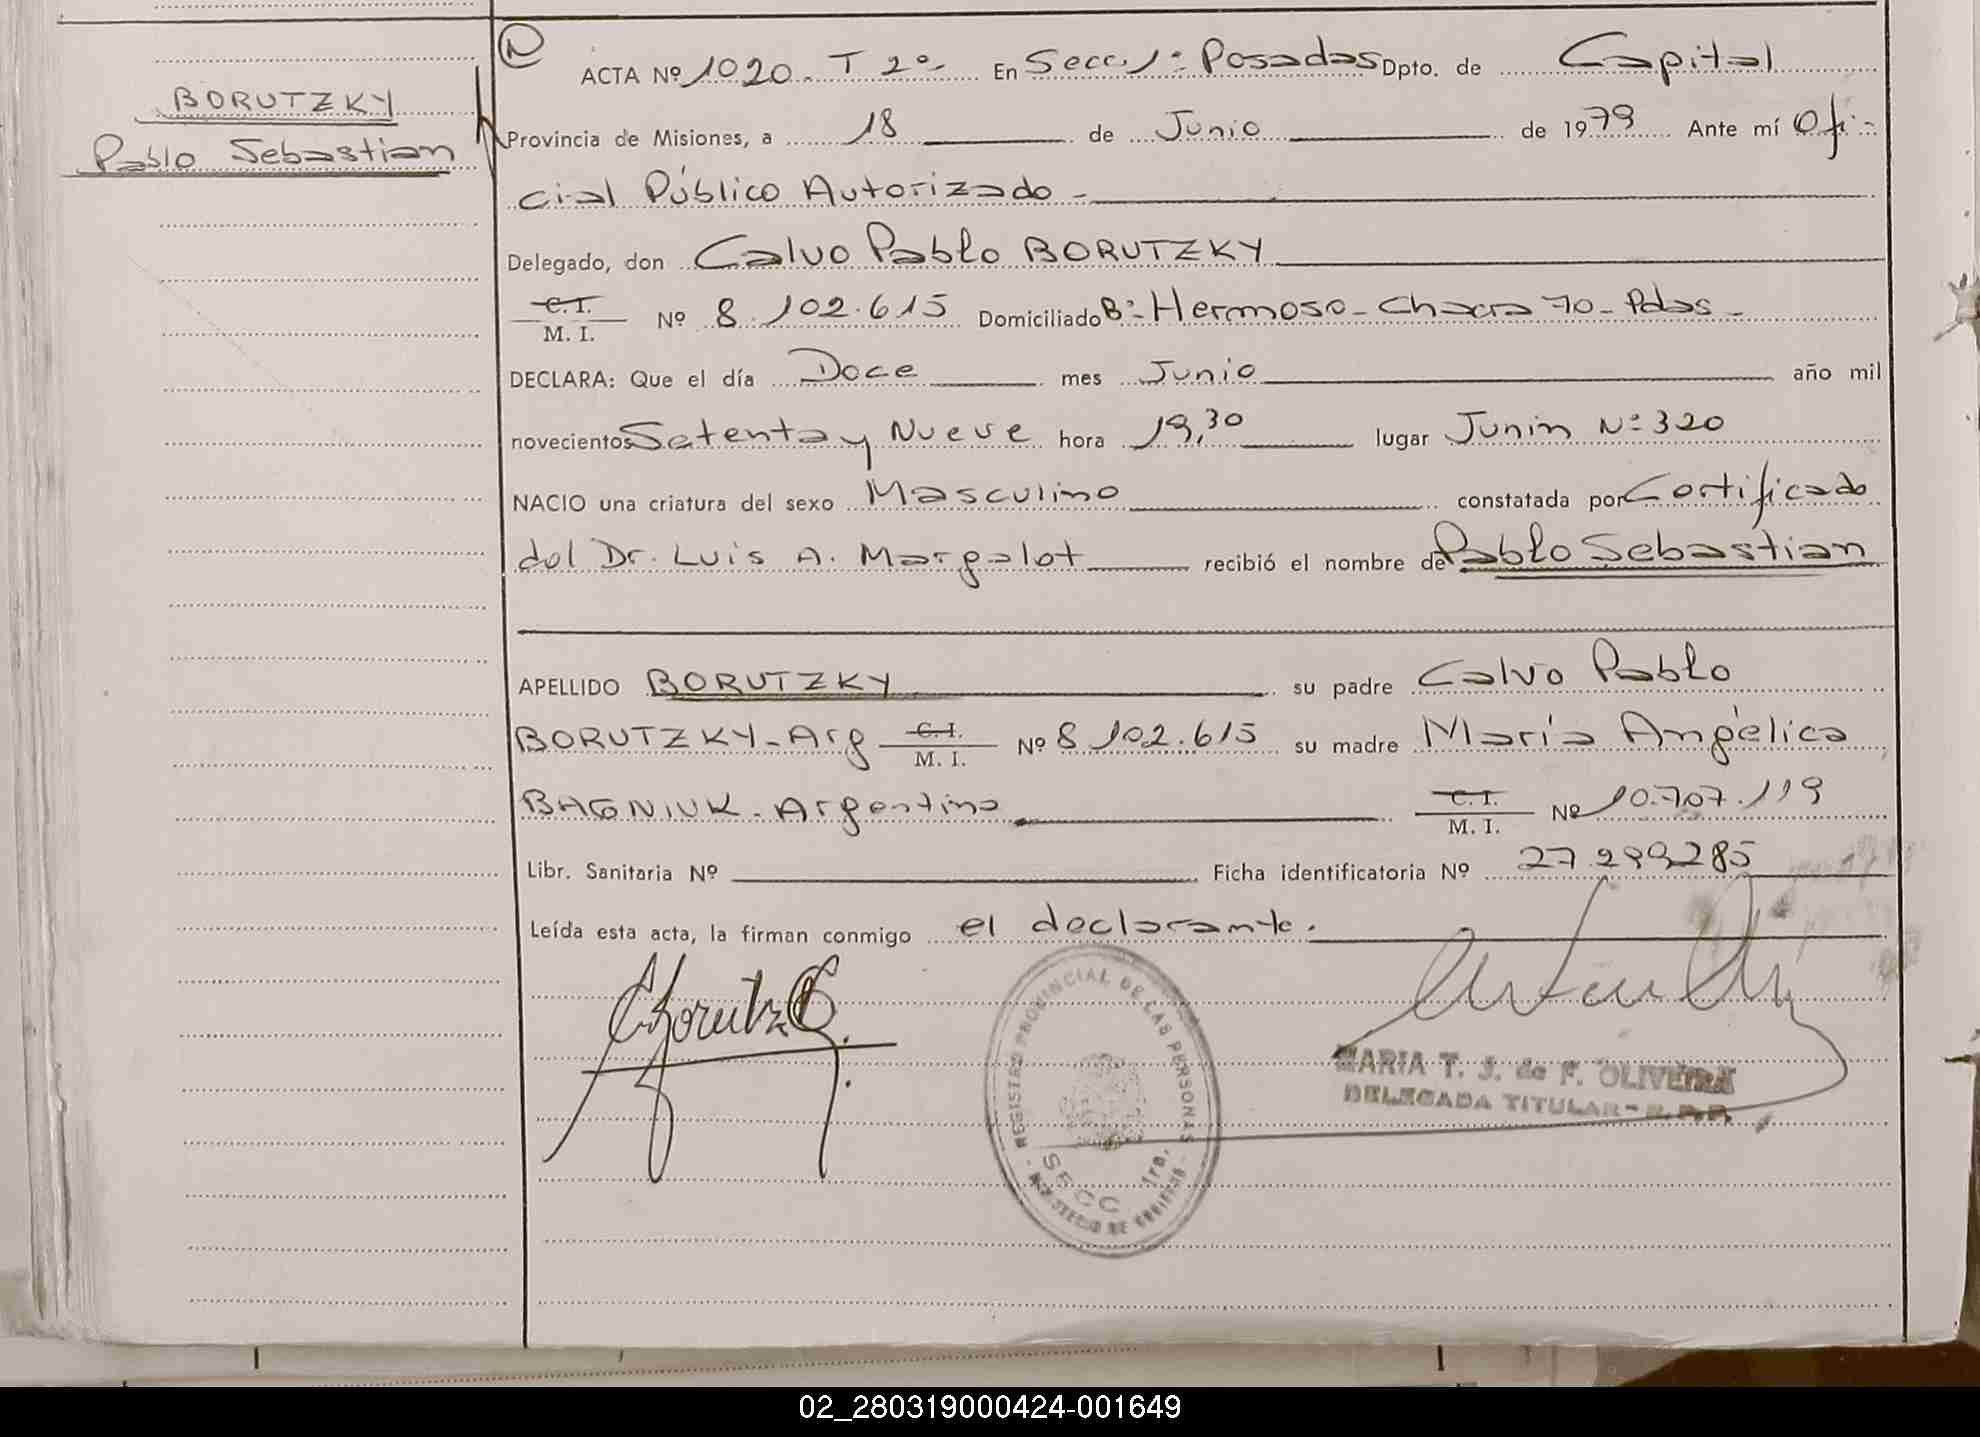 N
ACTA Nº 1020. T 2º En Secc. 1ª Posadas Dpto. de Capital
BORUTZKY
Pablo Sebastian
Provincia de Misiones, a 18 de Junio de 1979 Ante mí Ofi-
cial Público Autorizado -
Delegado, don Calvo Pablo BORUTZKY
C.I.
M. I. Nº 8.102.615 Domiciliado Bº Hermoso - Chacra 70 - Pdas -
DECLARA: Que el día Doce mes Junio año mil
novecientos Setenta y Nueve hora 19,30 lugar Junin Nº 320
NACIO una criatura del sexo Masculino constatada por Certificado
del Dr. Luis A. Margalot recibió el nombre de Pablo Sebastian
APELLIDO BORUTZKY su padre Calvo Pablo
BORUTZKY - Arg C.I.
M. I. Nº 8.102.615 su madre María Angélica
BAGNIUK - Argentina C.I.
M. I. Nº 10.707.119
Libr. Sanitaria Nº Ficha identificatoria Nº 27.299285
Leída esta acta, la firman conmigo el declarante.
REGISTRO PROVINCIAL DE LAS PERSONAS
SECC 1ra.
MINISTERIO DE GOBIERNO
MARIA T. J. de F. OLIVEIRA
DELEGADA TITULAR - R. P. P.
02_280319000424-001649